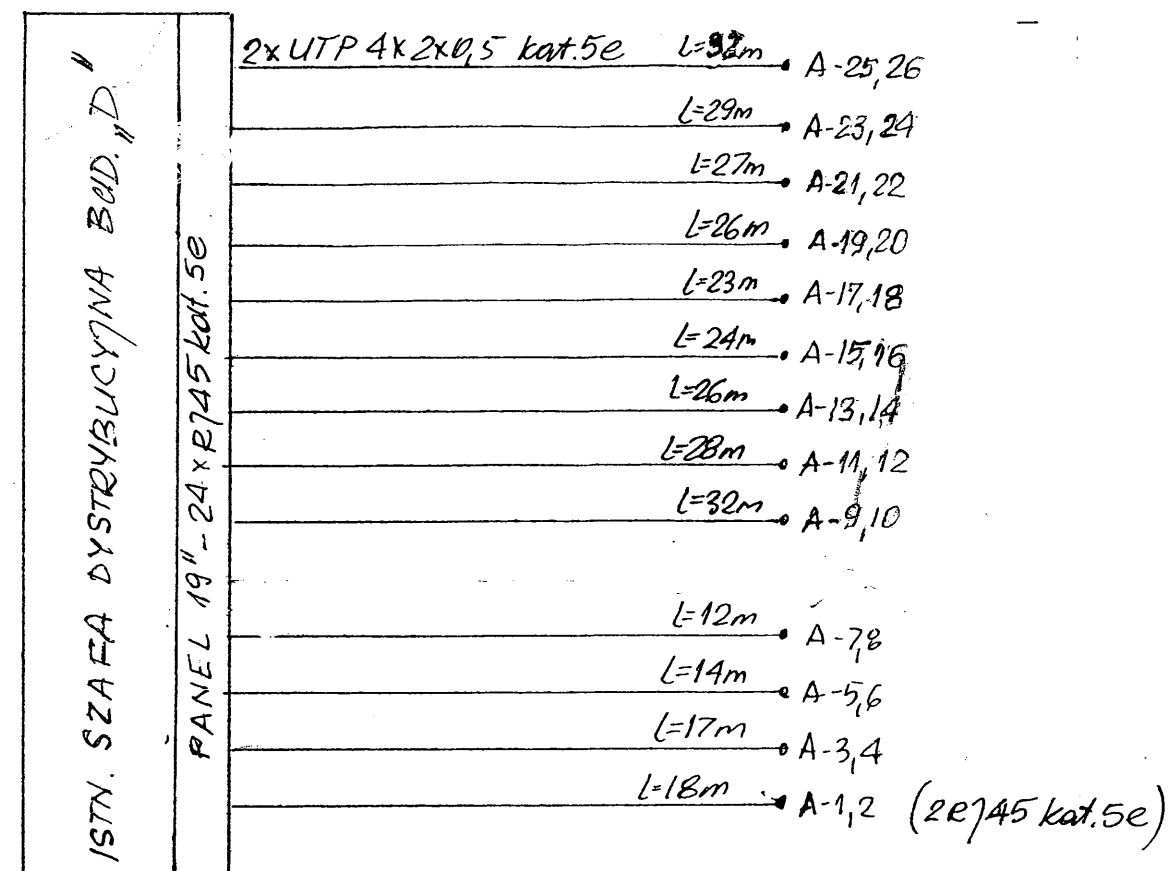 ISTN. SZAFA DYSTRYBUCYJNA BUD. „D"
PANEL 19" - 24 x RJ45 kat. 5e
2x UTP 4x2x0,5 kat.5e L=32m A-25,26
L=29m A-23,24
L=27m A-21,22
L=26m A-19,20
L=23m A-17,18
L=24m A-15,16
L=26m A-13,14
L=28m A-11,12
L=32m A-9,10
L=12m A-7,8
L=14m A-5,6
L=17m A-3,4
L=18m A-1,2 (2RJ45 kat.5e)